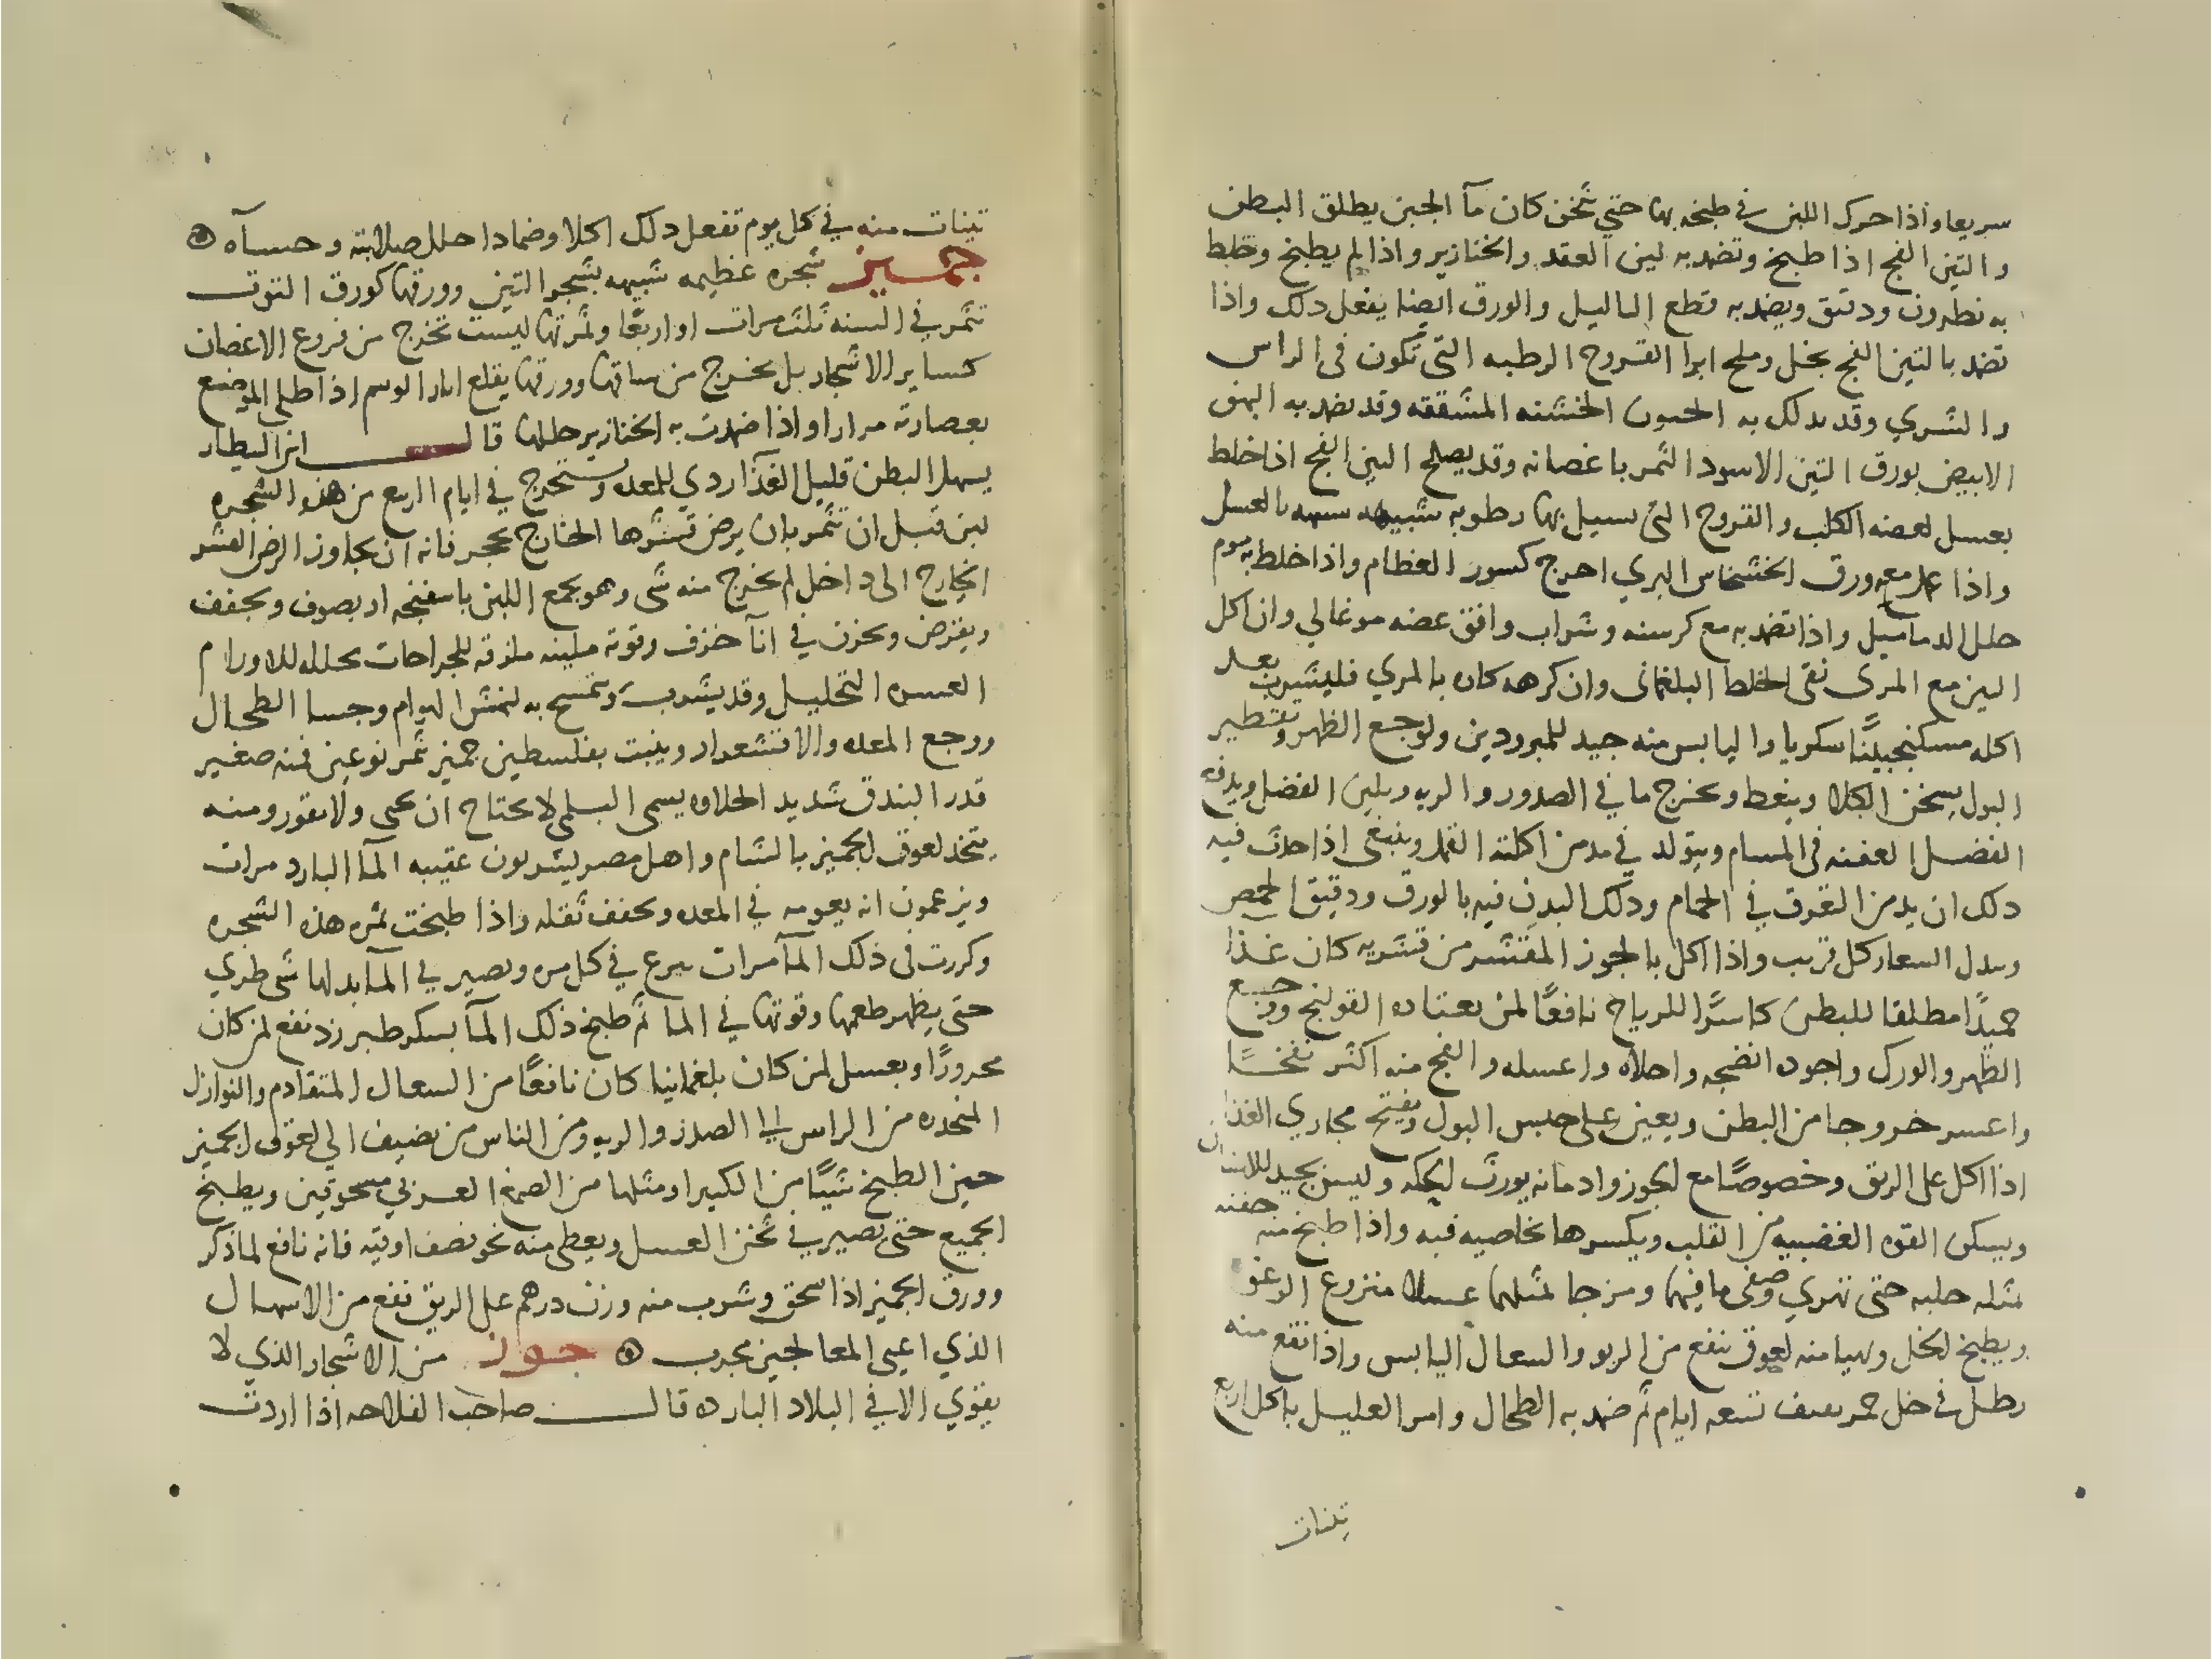 سريعا واذا حرك اللبن في طبخه بها حتي تخن كان مآ الجبن يطلق البطن
والتين الفج اذا طبخ وتضمد به لين العقد والخنازير واذا لم يطبخ وخلط
به نطرون ودقيق ويضمد به قطع الثاليل والورق ايضا يفعل دلك واذا
تضمد بالتين الفج بخل وملح ابرا القروح الرطبه التي تكون في الراس
والشري وقد يدلك به الجفون الخشنه المشققه وقد يضمد به البهق
الابيض بورق التين الاسود الثمر باغصانه وقد يصلح التين الفج اذا خلط
بعسل لعضه الكلب والقروح التي يسيل بها رطوبه شبيهه بالعسل
واذا عمل مع ورق الخشخاش البري اخرج كسور العظام واذا خلط به موم
حلل الدماميل واذا تضمد به مع كرسنه وشراب وافق عضه موغالي وان اكل
التين مع المري نقى الخلط البلغماني وان كرهه كان بالمري فليشرب بعد
اكله سكنجبينًا سكريا واليابس منه جيد للمبرودين ولوجع الظهر وتقطير
البول يسخن الكلا وينعظ ويخرج ما في الصدور والريه ويلين الفضل ويدفع
الفضل العفنه في المسام ويتولد في مدمن اكلته القمل وينبغي اذا حدث فيه
دلك ان يدمن التعرق في الحمام ودلك البدن فيه بالورق ودقيق الحمص
وبدل السعار كل قريب واذا اكل بالجوز المقشر من قشريه كان غذا
حميدًا مطلقا للبطن كاسرًا للرياح نافعًا لمن يعتاده القولنج ووجع
الظهر والورك واجوده انضجه واحلاه واعسله والفج منه اكثر نفخًا
واعسر خروجا من البطن ويعين على حبس البول ويفتح مجاري الغذا
اذا اكل على الريق وخصوصًا مع الجوز وادمانه يورث الحكه وليس بجيد للاسنان
ويسكن القوه الغضبيه من القلب ويكسرها بخاصيه فيه واذا طبخ منه حفنه
مثله حلبه حتى تهري وصفي ما فيها ومزجا بمثلهما عسلا منزوع الرغوه
ويطبخ بخل وتهيا منه لعوق نفع من الربو والسعال اليابس واذا نقع منه
رطل في خل خمر تسعه ايام ثم ضمد به الطحال وامر العليل باكل اربع
تينات
تينات منه في كل يوم تفعل دلك اكلا وضمادا حلل صلابته وحساه
جميز شجره عظيمه شبيهه بشجر التين وورقها كورق التوت
تثمر في السنه ثلث مرات او اربعًا وثمرتها ليست تخرج من فروع الاغصان
كساير الاشجار بل تخرج من ساقها وورقها يقلع اثار الوسم اذا طلي الموضع
بعصارته مرارا واذا ضمدت به الخنازير حللها قال ابن البيطار
يسهل البطن قليل الغذآ ردي للمعده ويستخرج في ايام الربيع من هذه الشجره
لبن قبل ان تثمر بان يرض قشرها الخارج بحجر فانه ان تجاوز الرض القشر
الخارج الى داخل لم يخرج منه شى وهو يجمع اللبن باسفنجه او بصوف ويجفف
ويقرض ويخزن في انآ خزف وقوته ملينه ملزقه للجراحات محلله للاورام
العسره التحليل وقد يشرب ويتمسح به لنهش الهوام وجسا الطحال
ووجع المعده والاقشعرار وينبت بفلسطين جميز تثمر نوعين فمنه صغير
قدر البندق شديد الحلاوه يسمى البلمي لا يحتاج ان يحمى ولا يقور ومنه
يتخذ لعوق الجميز بالشام واهل مصر يشربون عقيبه المآ البارد مرات
ويزعمون انه يعومه في المعده ويخفف ثقله واذا طبخت ثمره هذه الشجره
وكررت في ذلك المآ مرات تنزع في كل مره وتصير في المآ بدلها شى طري
حتى يظهر طعمها وقوتها في المآ ثم طبخ ذلك المآ بسكر طبرزد نفع لمن كان
محرورًا وبعسل لمن كان بلغمانيا كان نافعًا من السعال المتقادم والنوازل
المنحدره من الراس الى الصدر والريه ومن الناس من يضيف الي لعوق الجميز
حين الطبخ شيًا من الكثيرا ومثلها من الصمغ العربي مسحوقين ويطبخ
الجميع حتى تصير في ثخن العسل ويعطى منه نحو نصف اوقيه فانه نافع لما ذكر
وورق الجميز اذا سحق وشرب منه وزن درهم على الريق نفع من الاسهال
الذي اعيى المعالجين مجرب جوز من الاشجار الذي لا
يقوي الا في البلاد البارده قال صاحب الفلاحه اذا اردت